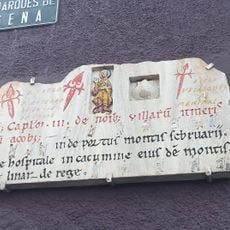 MARQUÉS DE
ENA
: Caplo: III. de nōīb; villarū itineris
i iacobi:
inde portus montis februarij.
e hospitale in cacumine eius dē montis
linar. de rege.